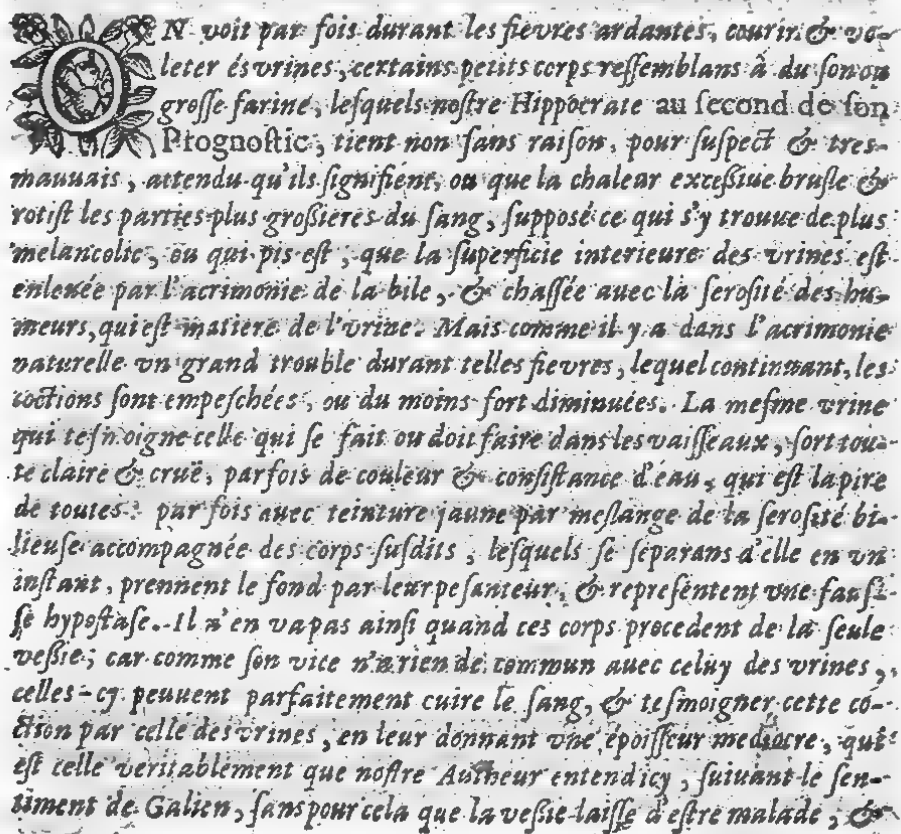 ON voit par fois durant les fievres ardantes, courir & vo-
leter és vrines, certains petits corps ressemblans à du son ou
grosse farine, lesquels nostre Hippocrate au second de son
Prognostic, tient non sans raison, pour suspect & tres-
mauuais, attendu qu'ils signifient, ou que la chaleur excessiue brusle &
rotist les parties plus grossieres du sang, supposé ce qui s'y trouue de plus
melancolic, ou qui pis est, que la superficie interieure des vrines est
enleuée par l'acrimonie de la bile, & chassée auec la serosité des hu-
meurs, qui est matiere de l'vrine. Mais comme il y a dans l'acrimonie
naturelle vn grand trouble durant telles fievres, lequel continuant, les
coctions sont empeschées, ou du moins fort diminuées. La mesme vrine
qui tesmoigne celle qui se fait ou doit faire dans les vaisseaux, sort tou-
te claire & cruë, parfois de couleur & consistance d'eau, qui est la pire
de toutes: par fois auec teinture jaune par meslange de la serosité bi-
lieuse accompagnée des corps susdits, lesquels se separans d'elle en vn
instant, prennent le fond par leur pesanteur, & representent vne faus-
se hypostase. Il n'en va pas ainsi quand ces corps procedent de la seule
vessie; car comme son vice n'a rien de commun auec celuy des vrines,
celles-cy peuuent parfaitement cuire le sang, & tesmoigner cette co-
ction par celle des vrines, en leur donnant vne époisseur mediocre, qui
est celle veritablement que nostre Autheur entend icy, suiuant le sen-
timent de Galien, sans pour cela que la vessie laisse d'estre malade, &